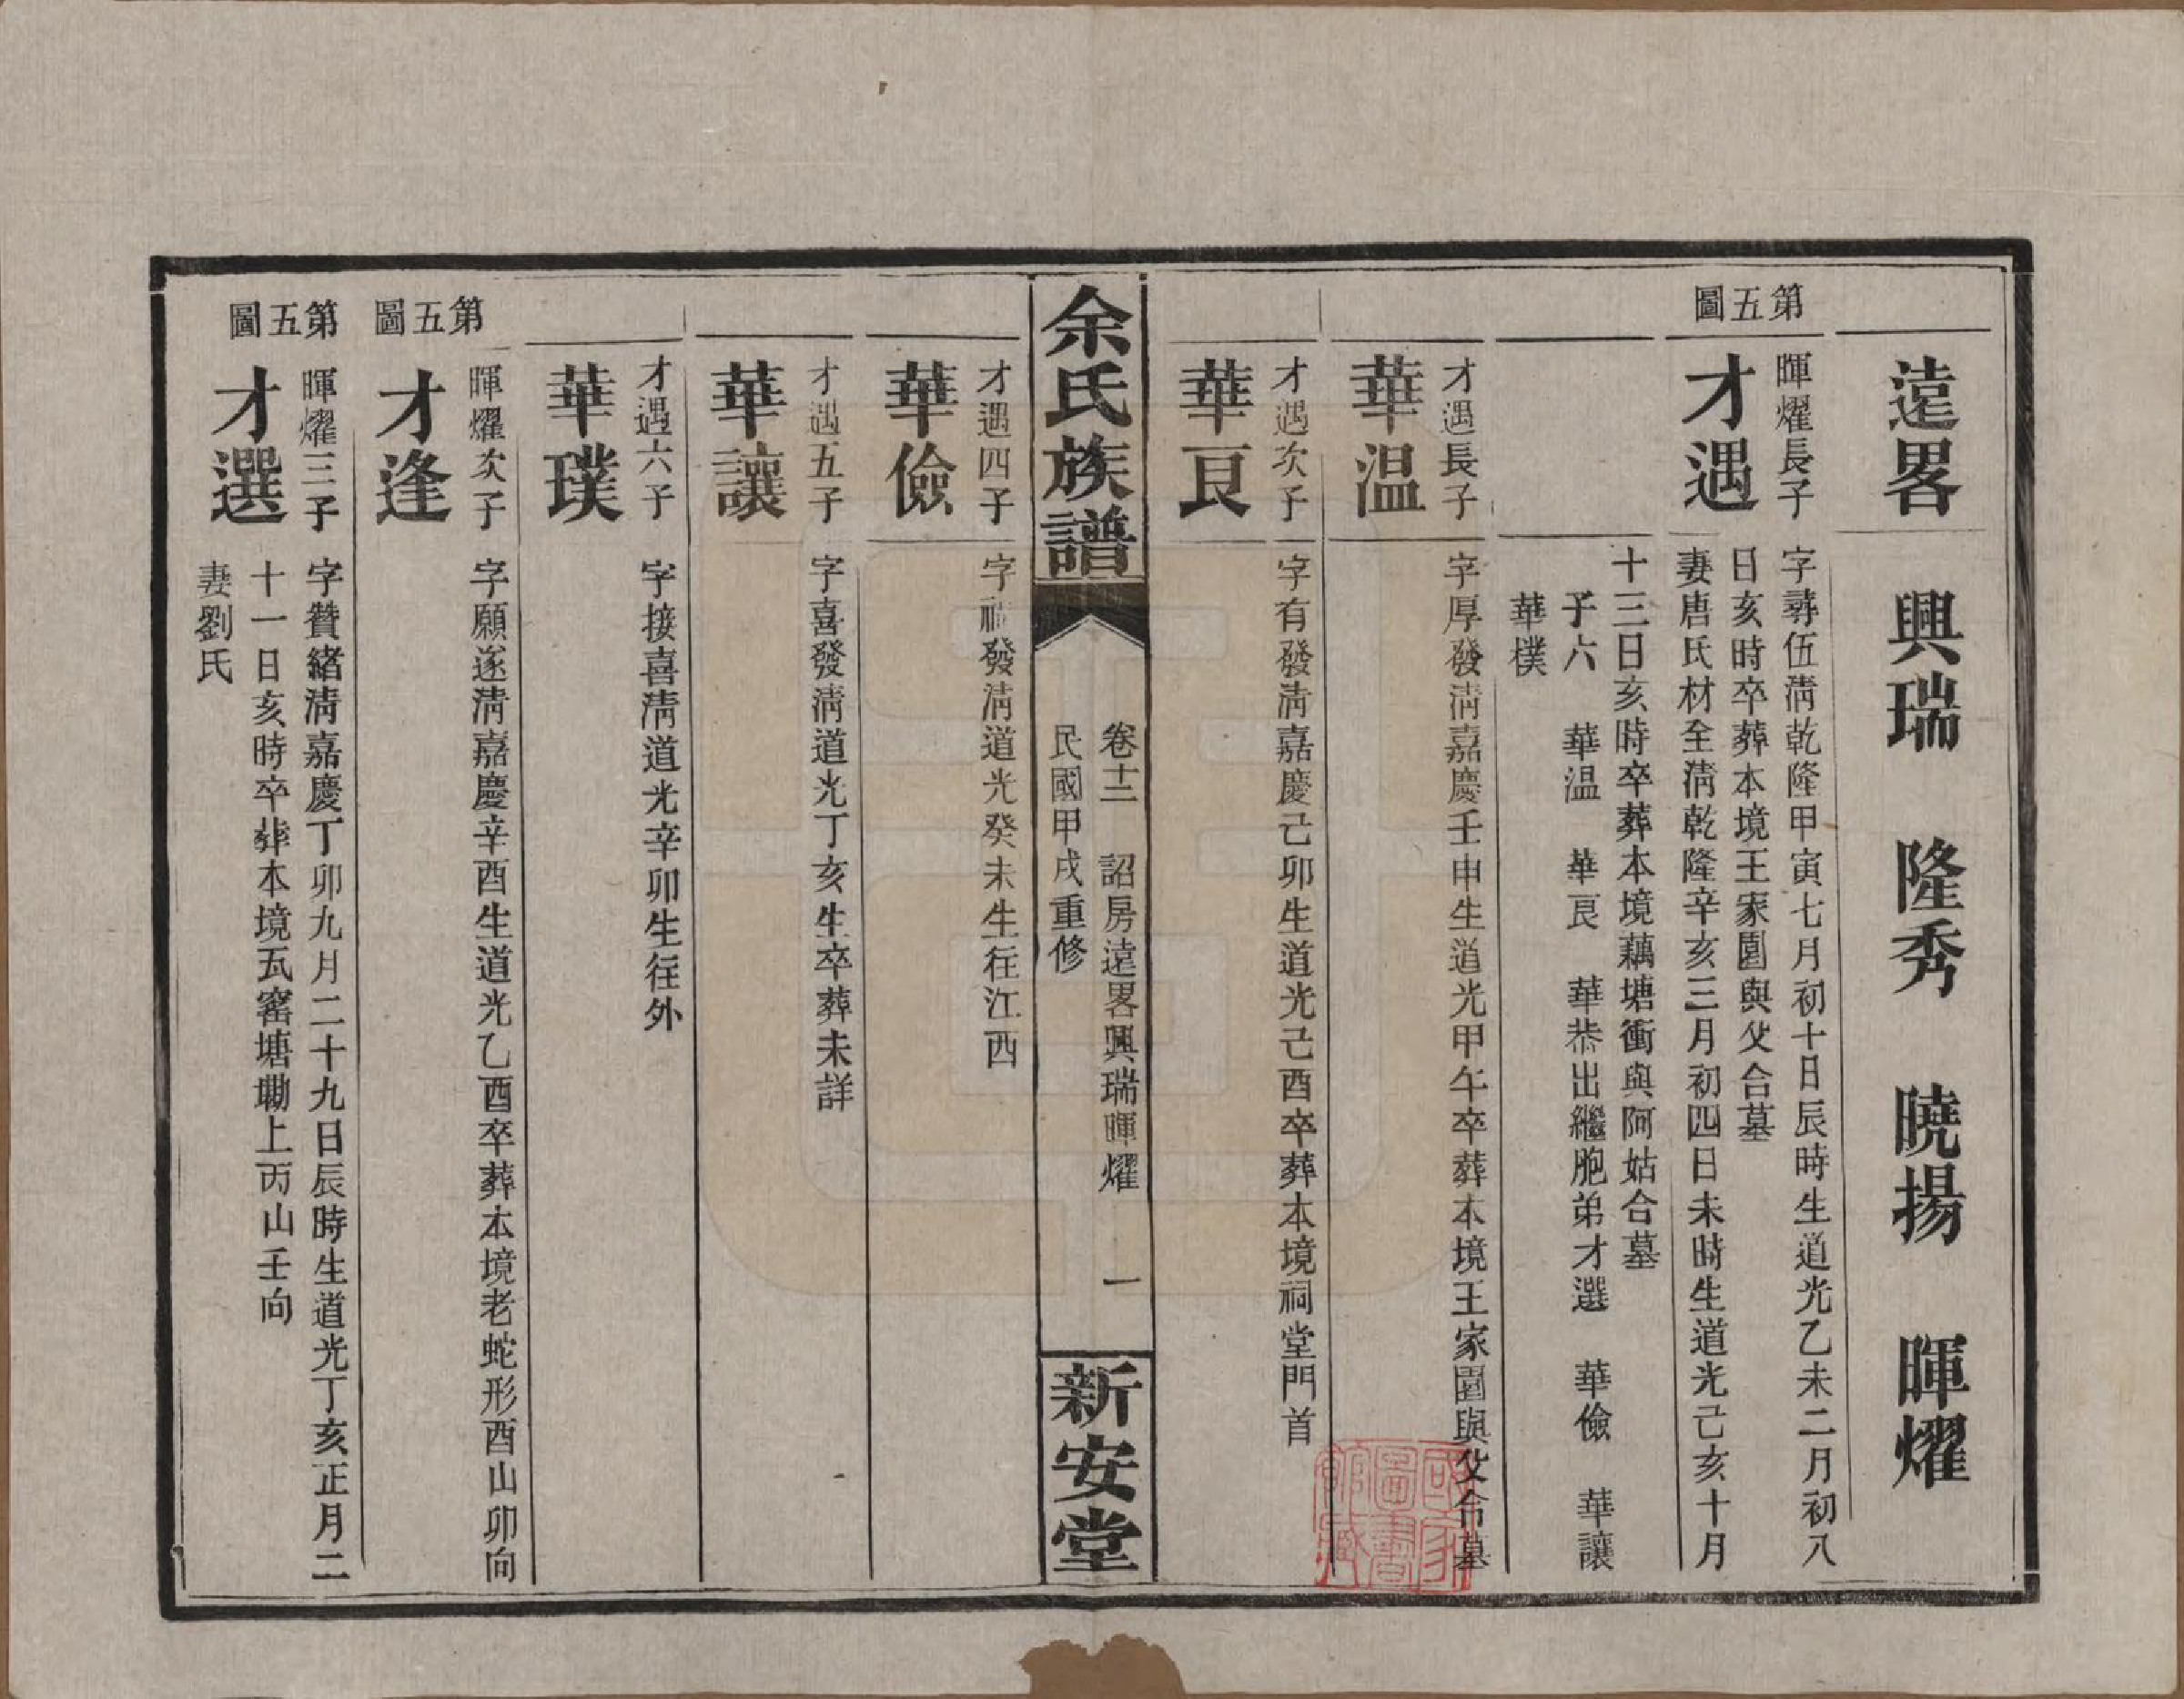 遠畧 興瑞 隆秀 曉揚 暉燿
第五圖
暉燿長子
才遇
字尋伍淸乾隆甲寅七月初十日辰時生道光乙未二月初八
日亥時卒葬本境王家園與父合墓
妻唐氏材全淸乾隆辛亥三月初四日未時生道光己亥十月
十三日亥時卒葬本境藕塘衝與阿姑合墓
子六 華温 華良 華恭出繼胞弟才選 華儉 華讓
華樸
才遇長子
華温
字厚發淸嘉慶壬申生道光甲午卒葬本境王家園與父合墓
才遇次子
華良
字有發淸嘉慶己卯生道光己酉卒葬本境祠堂門首
余氏族譜
卷十二 詔房遠畧興瑞暉燿 一
民國甲戌重修
新安堂
才遇四子
華儉
字福發淸道光癸未生往江西
才遇五子
華讓
字喜發淸道光丁亥生卒葬未詳
才遇六子
華璞
字接喜淸道光辛卯生往外
第五圖
暉燿次子
才逢
字願遂淸嘉慶辛酉生道光乙酉卒葬本境老蛇形酉山卯向
第五圖
暉燿三子
才選
字贊緒淸嘉慶丁卯九月二十九日辰時生道光丁亥正月二
十一日亥時卒葬本境瓦窰塘墈上丙山壬向
妻劉氏
國家圖書館藏